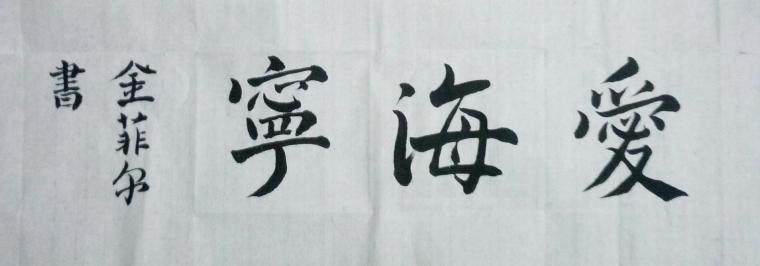 愛海寧
金菲尔
書